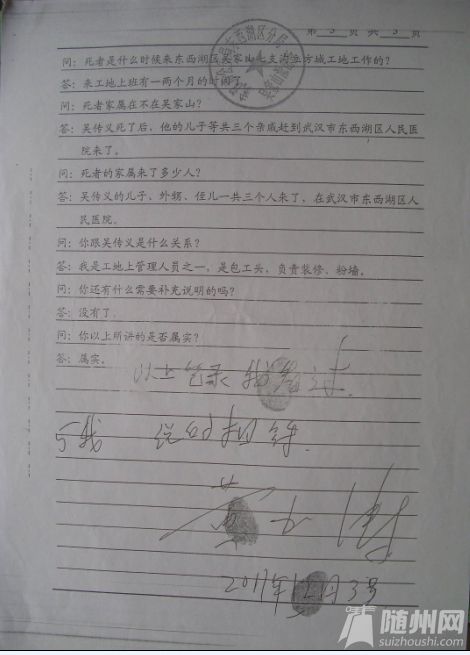 第 3 页 共 3 页
问：死者是什么时候来东西湖区吴家山七支沟五方城工地工作的？
答：来工地上班有一两个月的时间了。
问：死者家属在不在吴家山？
答：吴传义死了后，他的儿子等共三个亲戚赶到武汉市东西湖区人民医
院来了。
问：死者的家属来了多少人？
答：吴传义的儿子，外甥、侄儿一共三个人来了，在武汉市东西湖区人
民医院。
问：你跟吴传义是什么关系？
答：我是工地上管理人员之一，是包工头，负责装修、粉墙。
问：你还有什么需要补充说明的吗？
答：没有了
问：你以上所讲的是否属实？
答：属实。
以上笔录 我看过
与我 说的相符.
2011年12月3号
随州网
suizhoushi.com